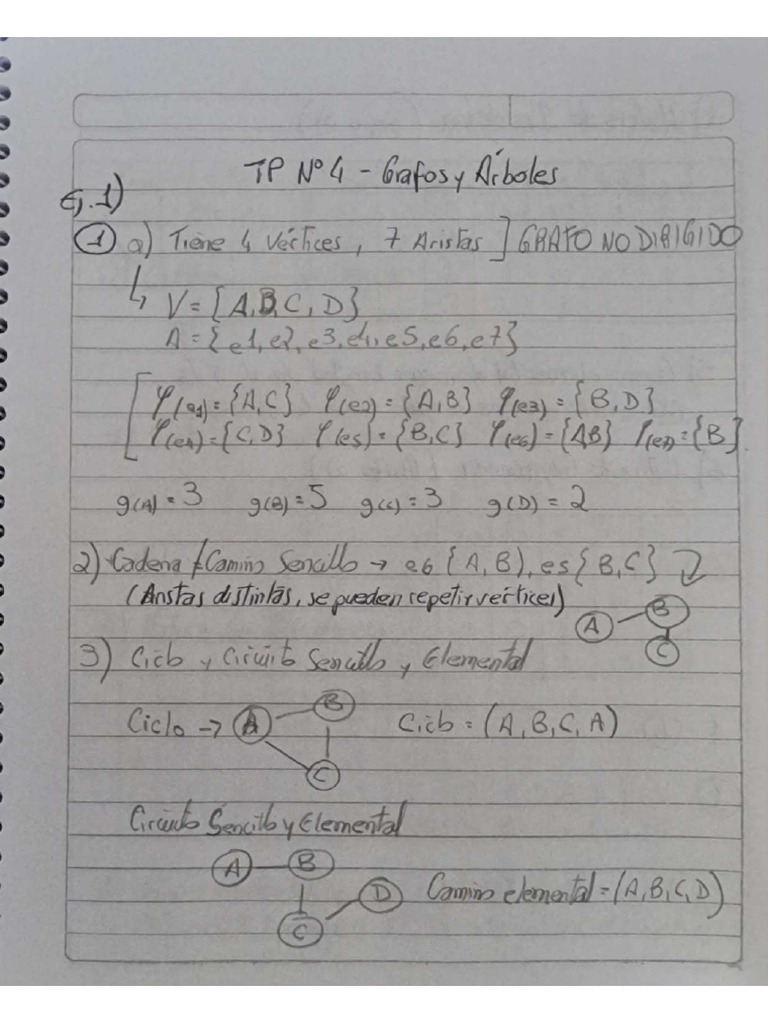 TP Nº 4 - Grafos y Árboles
Ej. 1)
1 a) Tiene 4 Vértices, 7 Aristas ] GRAFO NO DIRIGIDO
↳ V = {A, B, C, D}
A = {e1, e2, e3, e4, e5, e6, e7}
φ(e1) = {A, C} φ(e2) = {A, B} φ(e3) = {B, D}
φ(e4) = {C, D} φ(e5) = {B, C} φ(e6) = {AB} φ(e7) = {B}.
g(A) = 3 g(B) = 5 g(C) = 3 g(D) = 2
2) Cadena / Camino Sencillo → e6 {A, B}, e5 {B, C}
(Aristas distintas, se pueden repetir vértices)
A B C
3) Ciclo y Circuito Sencillo y Elemental
Ciclo → A B C Ciclo = (A, B, C, A)
Circuito Sencillo y Elemental
A B C D Camino elemental = (A, B, C, D)